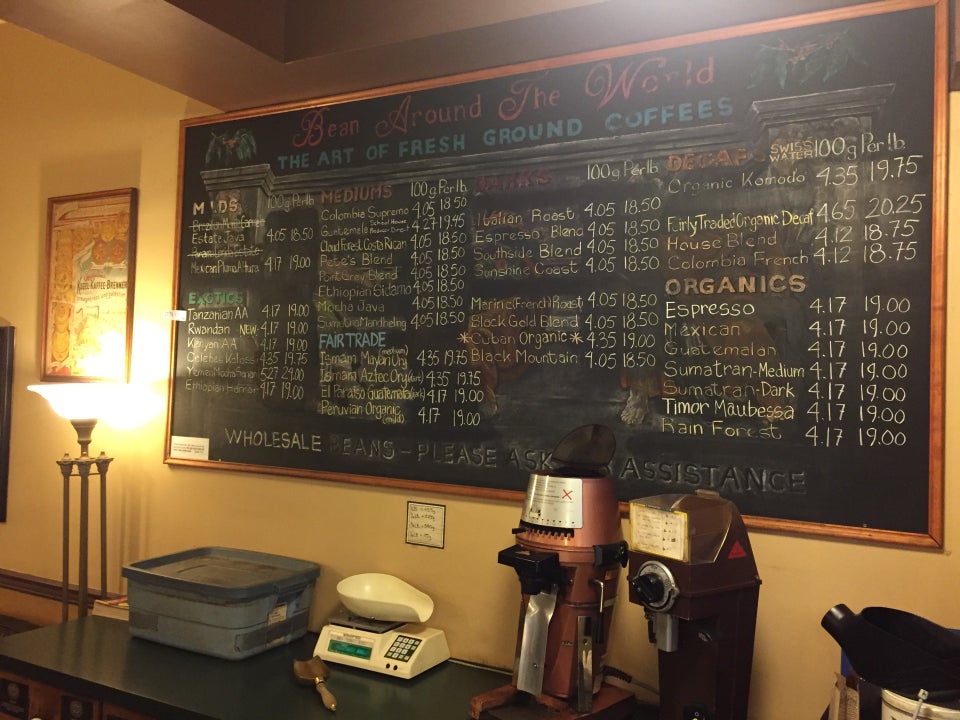 Bean Around The World
THE ART OF FRESH GROUND COFFEES
MILDS 100g Per lb
Estate Java 4.05 18.50
Mexican Pluma Altura 4.17 19.00
EXOTICS
Tanzanian AA 4.17 19.00
Rwandan NEW 4.17 19.00
Kenyan AA 4.17 19.00
Celebes Kalossi 4.35 19.75
Yemen Mocha 5.27 24.00
Ethiopian Harrar 4.17 19.00
MEDIUMS 100g Per lb.
Colombia Supremo 4.05 18.50
Guatemala School House 4.27 19.45
Cloud Forest Costa Rican 4.05 18.50
Pete's Blend 4.05 18.50
Blend 4.05 18.50
Ethiopian Sidamo 4.05 18.50
Mocha Java 4.05 18.50
Sumatra Mandheling 4.05 18.50
FAIR TRADE
Tsmam Mayan Org (medium) 4.35 19.75
Tsmami Aztec Org (dark) 4.35 19.75
El Paraiso Guatemala 4.17 19.00
Peruvian Organic (mild) 4.17 19.00
DARKS 100g Per lb
Italian Roast 4.05 18.50
Espresso Blend 4.05 18.50
Southside Blend 4.05 18.50
Sunshine Coast 4.05 18.50
Marine (French) Roast 4.05 18.50
Black Gold Blend 4.05 18.50
*Cuban Organic* 4.35 19.00
Black Mountain 4.05 18.50
DECAFS SWISS WATER 100g Per lb.
Organic Komodo 4.35 19.75
Fairly Traded Organic Decaf 4.65 20.25
House Blend 4.12 18.75
Colombia French 4.12 18.75
ORGANICS
Espresso 4.17 19.00
Mexican 4.17 19.00
Guatemalan 4.17 19.00
Sumatran-Medium 4.17 19.00
Sumatran-Dark 4.17 19.00
Timor Maubessa 4.17 19.00
Rain Forest 4.17 19.00
WHOLESALE BEANS - PLEASE ASK FOR ASSISTANCE